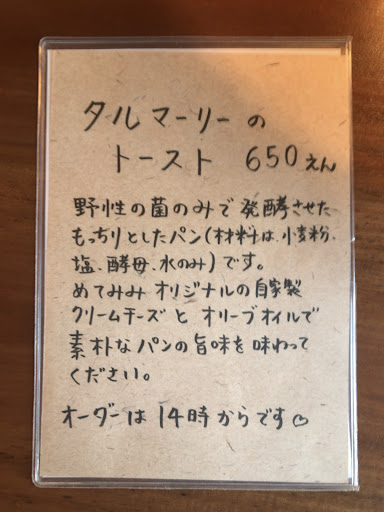 タルマーリーの
トースト 650えん
野性の菌のみで発酵させた
もっちりとしたパン(材料は、小麦粉、
塩、酵母、水のみ)です。
めてみみオリジナルの自家製
クリームチーズとオリーブオイルで
素朴なパンの旨味を味わって
ください。
オーダーは14時からです♡